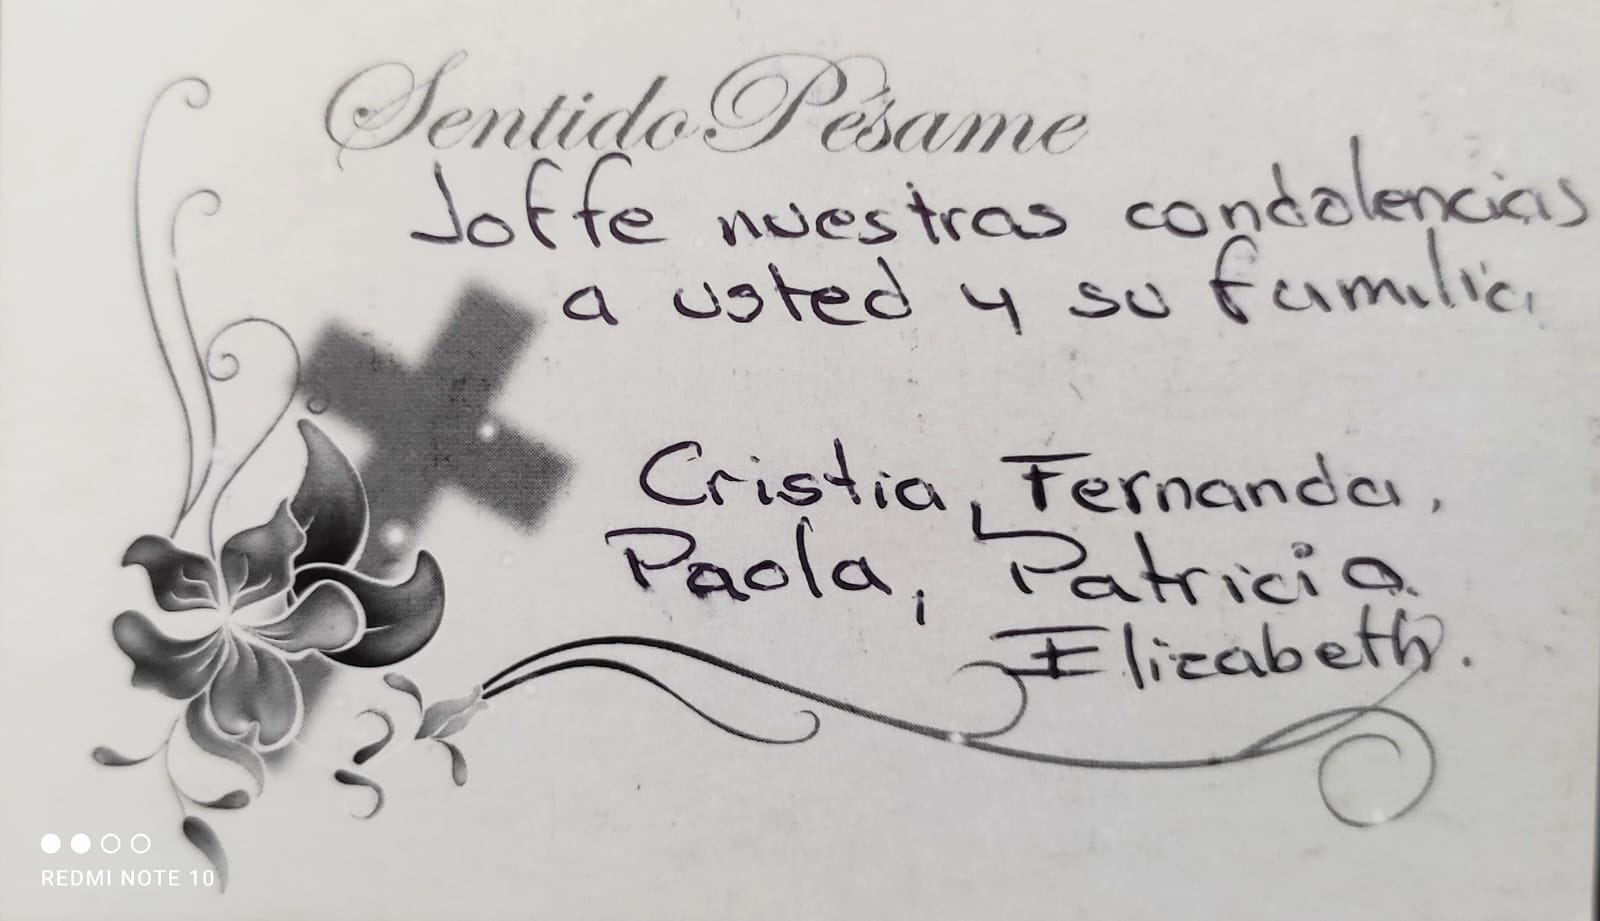 Sentido Pésame
Joffe nuestras condolencias
a usted y su familia
Cristia, Fernanda,
Paola, Patricia
Elizabeth.
REDMI NOTE 10